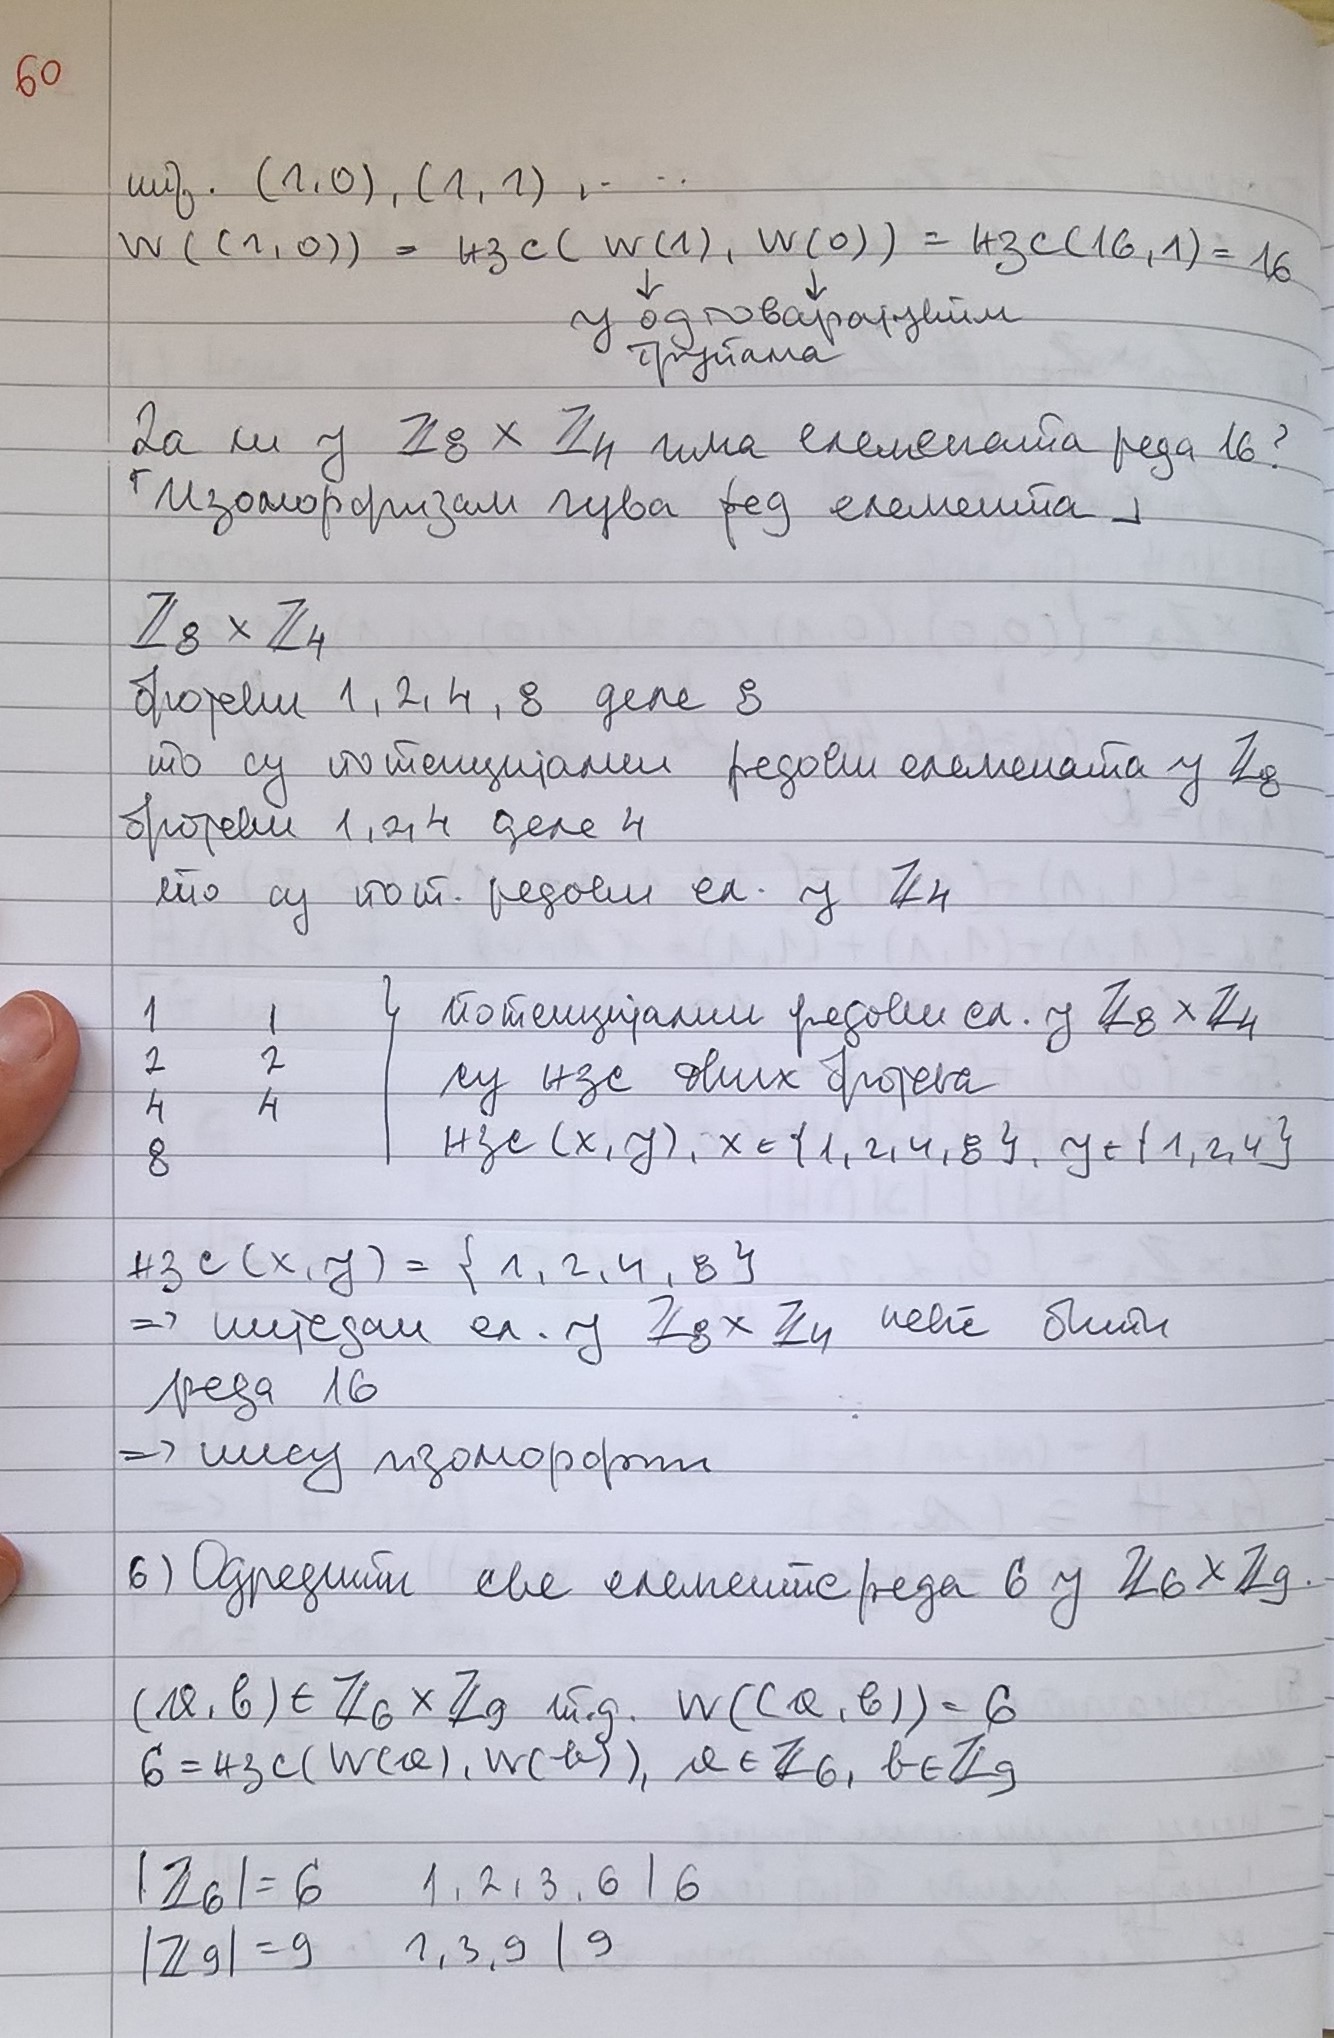 60
нпр. (1,0), (1,1), ....
W((1,0)) = НЗС(W(1), W(0)) = НЗС(16,1) = 16
↓ ↓
у одговарајућим
групама
Да ли у ℤ8 × ℤ4 има елемената реда 16?
⌈Изоморфизам чува ред елемента⌋
ℤ8 × ℤ4
бројеви 1, 2, 4, 8 деле 8
то су потенцијални редови елемената у ℤ8
бројеви 1, 2, 4 деле 4
то су пот. редови ел. у ℤ4
1 1 } потенцијални редови ел. у ℤ8 × ℤ4
2 2 су НЗС ових бројева
4 4
8 НЗС(x, y), x ∈ {1, 2, 4, 8}, y ∈ {1, 2, 4}
НЗС(x, y) = {1, 2, 4, 8}
=> ниједан ел. у ℤ8 × ℤ4 неће бити
реда 16
=> нису изоморфни
6) Одредити све елементе реда 6 у ℤ6 × ℤ9.
(а, в) ∈ ℤ6 × ℤ9 т.д. W((а, в)) = 6
6 = НЗС(W(а), W(в)), а ∈ ℤ6, в ∈ ℤ9
|ℤ6| = 6 1, 2, 3, 6 | 6
|ℤ9| = 9 1, 3, 9 | 9